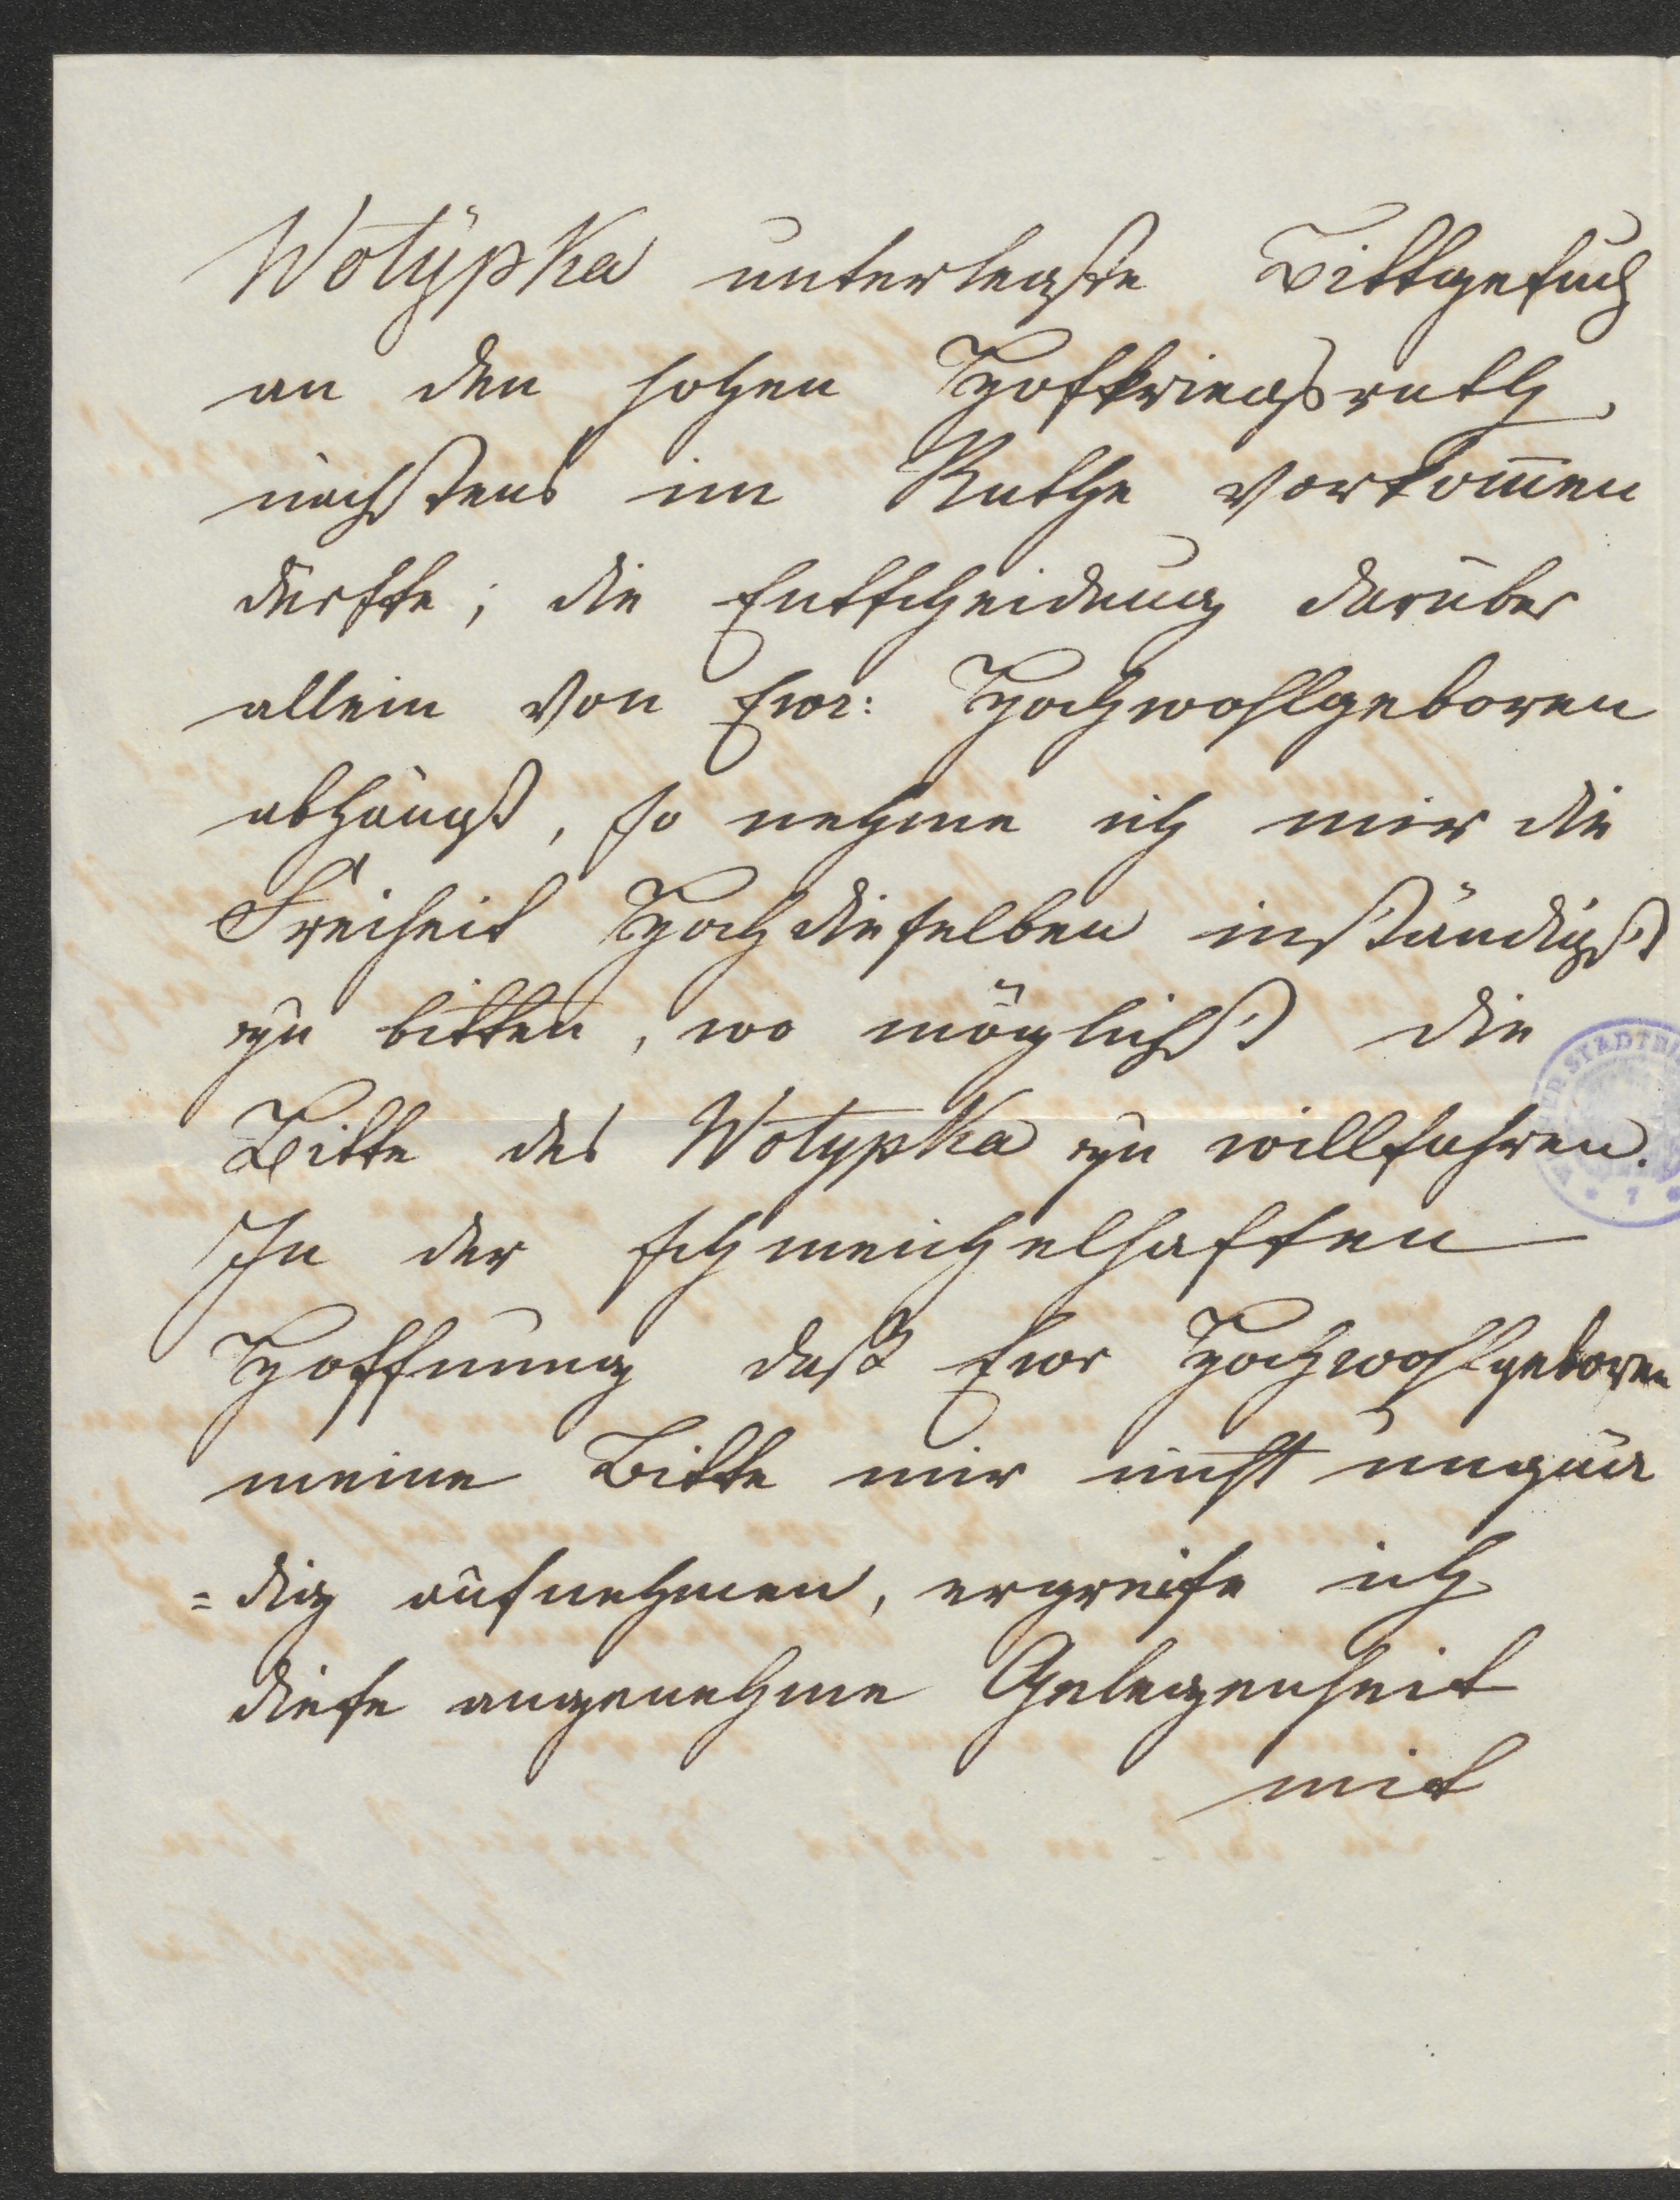 Wotÿpka unterlegte Bittgesuch
an den hohen Hofkriegsrath
nächstens im Rathe vorkom̅en
dürfte; die Entscheidung darüber
allein von Euer: Hochwohlgeboren
abhängt, so nehme ich mir die
Freiheit Hochdieselben inständigst
zu bitten, wo möglichst die
Bitte des Wotypka zu willfahren.
In der schmeichelhaften
Hoffnung daß Euer Hochwohlgeboren
meine Bitte mir nicht ungnä
=dig aufnehmen, ergreife ich
diese angenehme Gelegenheit
mit
STADTBI
7